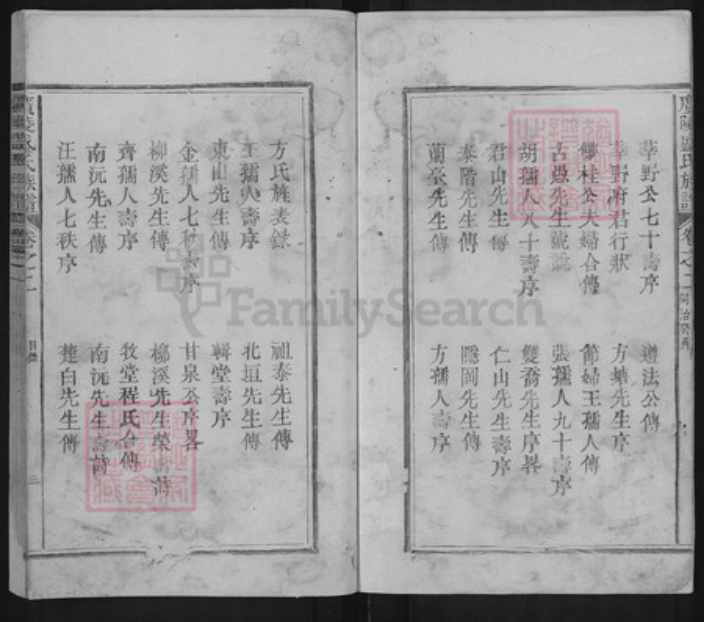 莘野公七十壽序
遵法公傳
莘野府君行狀
方塘先生序
卿桂公夫婦合傳
節婦王孺人傳
古愚先生號說
張孺人九十壽序
胡孺人八十壽序
雙喬先生序畧
君山先生傳
仁山先生壽序
泰階先生傳
隱岡先生傳
蘭臺先生傳
方孺人壽序
方氏旌表錄
祖泰先生傳
王孺人壽序
北垣先生傳
東山先生傳
輯堂壽序
金孺人七秩壽序
甘泉丞序畧
柳溪先生傳
柳溪先生榮壽詩
齊孺人壽序
牧堂程氏合傳
南沅先生傳
南沅先生壽詩
汪孺人七秩序
蓮白先生傳
氏族譜
卷之二
目錄
三
FamilySearch